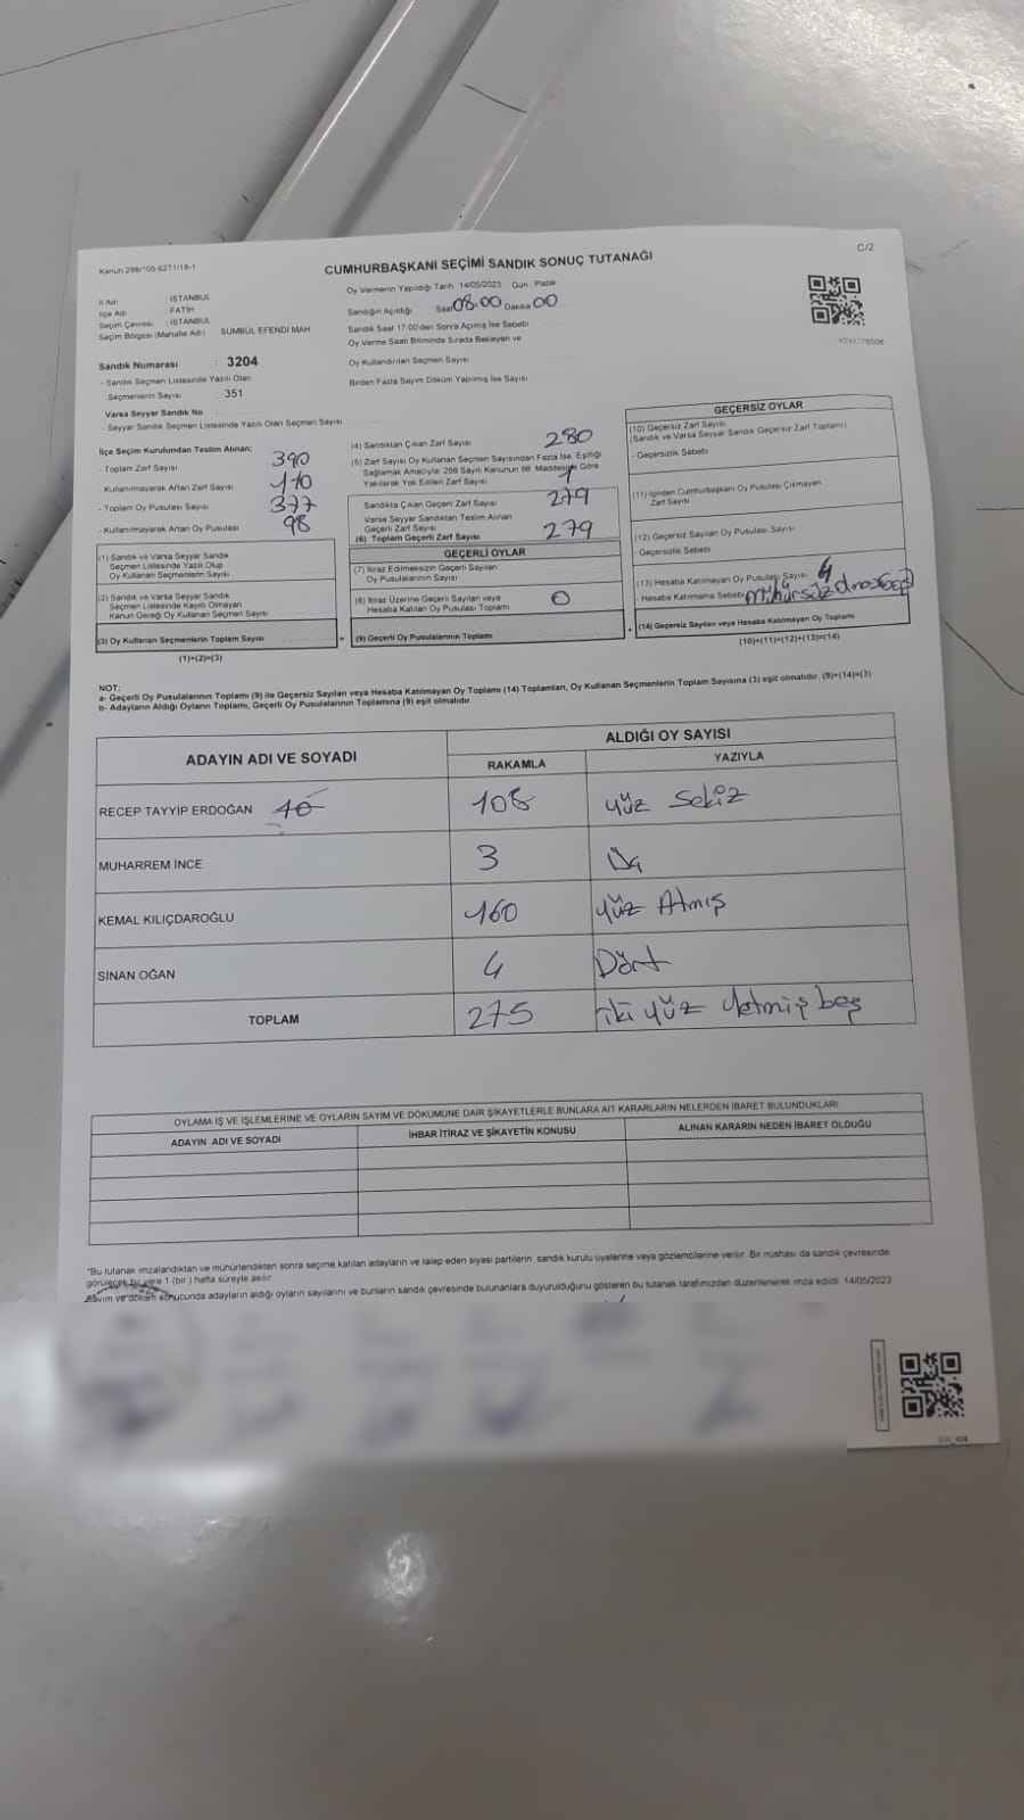 Kanun 298/105-6271/18-1
C/2
CUMHURBAŞKANI SEÇİMİ SANDIK SONUÇ TUTANAĞI
İl Adı : İSTANBUL
İlçe Adı : FATİH
Seçim Çevresi : İSTANBUL
Seçim Bölgesi (Mahalle Adı) : SÜMBÜL EFENDİ MAH
Sandık Numarası : 3204
- Sandık Seçmen Listesinde Yazılı Olan
Seçmenlerin Sayısı 351
Varsa Seyyar Sandık No
- Seyyar Sandık Seçmen Listesinde Yazılı Olan Seçmen Sayısı
Oy Vermenin Yapıldığı Tarih 14/05/2023 Gün : Pazar
Sandığın Açıldığı Saat 08:00 Dakika 00
Sandık Saat 17:00'den Sonra Açılmış İse Sebebi
Oy Verme Saati Bitiminde Sırada Bekleyen ve
Oy Kullandırılan Seçmen Sayısı
Birden Fazla Sayım Döküm Yapılmış İse Sayısı
İlçe Seçim Kurulundan Teslim Alınan;
- Toplam Zarf Sayısı 390
- Kullanılmayarak Artan Zarf Sayısı 110
- Toplam Oy Pusulası Sayısı 377
- Kullanılmayarak Artan Oy Pusulası 98
(1) Sandık ve Varsa Seyyar Sandık
Seçmen Listesinde Yazılı Olup
Oy Kullanan Seçmenlerin Sayısı
(2) Sandık ve Varsa Seyyar Sandık
Seçmen Listesinde Kayıtlı Olmayan
Kanun Gereği Oy Kullanan Seçmen Sayısı
(3) Oy Kullanan Seçmenlerin Toplam Sayısı
(1)+(2)=(3)
(4) Sandıktan Çıkan Zarf Sayısı 280
(5) Zarf Sayısı Oy Kullanan Seçmen Sayısından Fazla İse, Eşitliği
Sağlamak Amacıyla 298 Sayılı Kanunun 98. Maddesine Göre
Yakılarak Yok Edilen Zarf Sayısı 1
Sandıkta Çıkan Geçerli Zarf Sayısı 279
Varsa Seyyar Sandıktan Teslim Alınan
Geçerli Zarf Sayısı
(6) Toplam Geçerli Zarf Sayısı 279
GEÇERLİ OYLAR
(7) İtiraz Edilmeksizin Geçerli Sayılan
Oy Pusulalarının Sayısı
(8) İtiraz Üzerine Geçerli Sayılan veya
Hesaba Katılan Oy Pusulası Toplamı 0
(9) Geçerli Oy Pusulalarının Toplamı
GEÇERSİZ OYLAR
(10) Geçersiz Zarf Sayısı
(Sandık ve Varsa Seyyar Sandık Geçersiz Zarf Toplamı)
- Geçersizlik Sebebi
(11) İçinden Cumhurbaşkanı Oy Pusulası Çıkmayan
Zarf Sayısı
(12) Geçersiz Sayılan Oy Pusulası Sayısı
Geçersizlik Sebebi
(13) Hesaba Katılmayan Oy Pusulası Sayısı 4
- Hesaba Katılmama Sebebi mühürsüz
(14) Geçersiz Sayılan veya Hesaba Katılmayan Oy Toplamı
(10)+(11)+(12)+(13)=(14)
NOT:
a- Geçerli Oy Pusulalarının Toplamı (9) ile Geçersiz Sayılan veya Hesaba Katılmayan Oy Toplamı (14) Toplamları, Oy Kullanan Seçmenlerin Toplam Sayısına (3) eşit olmalıdır. (9)+(14)=(3)
b- Adayların Aldığı Oyların Toplamı, Geçerli Oy Pusulalarının Toplamına (9) eşit olmalıdır.
ADAYIN ADI VE SOYADI
ALDIĞI OY SAYISI
RAKAMLA YAZIYLA
RECEP TAYYİP ERDOĞAN 10 108 yüz Sekiz
MUHARREM İNCE 3 Üç
KEMAL KILIÇDAROĞLU 160 yüz Atmış
SİNAN OĞAN 4 Dört
TOPLAM 275 iki yüz yetmiş beş
OYLAMA İŞ VE İŞLEMLERİNE VE OYLARIN SAYIM VE DÖKÜMÜNE DAİR ŞİKAYETLERLE BUNLARA AİT KARARLARIN NELERDEN İBARET BULUNDUKLARI
ADAYIN ADI VE SOYADI İHBAR İTİRAZ VE ŞİKAYETİN KONUSU ALINAN KARARIN NEDEN İBARET OLDUĞU
"Bu tutanak imzalandıktan ve mühürlendikten sonra seçime katılan adayların ve talep eden siyasi partilerin, sandık kurulu üyelerine veya gözlemcilerine verilir. Bir nüshası da sandık çevresinde
görülecek bir yere 1 (bir) hafta süreyle asılır.
Sayım ve döküm sonucunda adayların aldığı oyların sayılarını ve bunların sandık çevresinde bulunanlara duyurulduğunu gösteren bu tutanak tarafımızdan düzenlenerek imza edildi. 14/05/2023